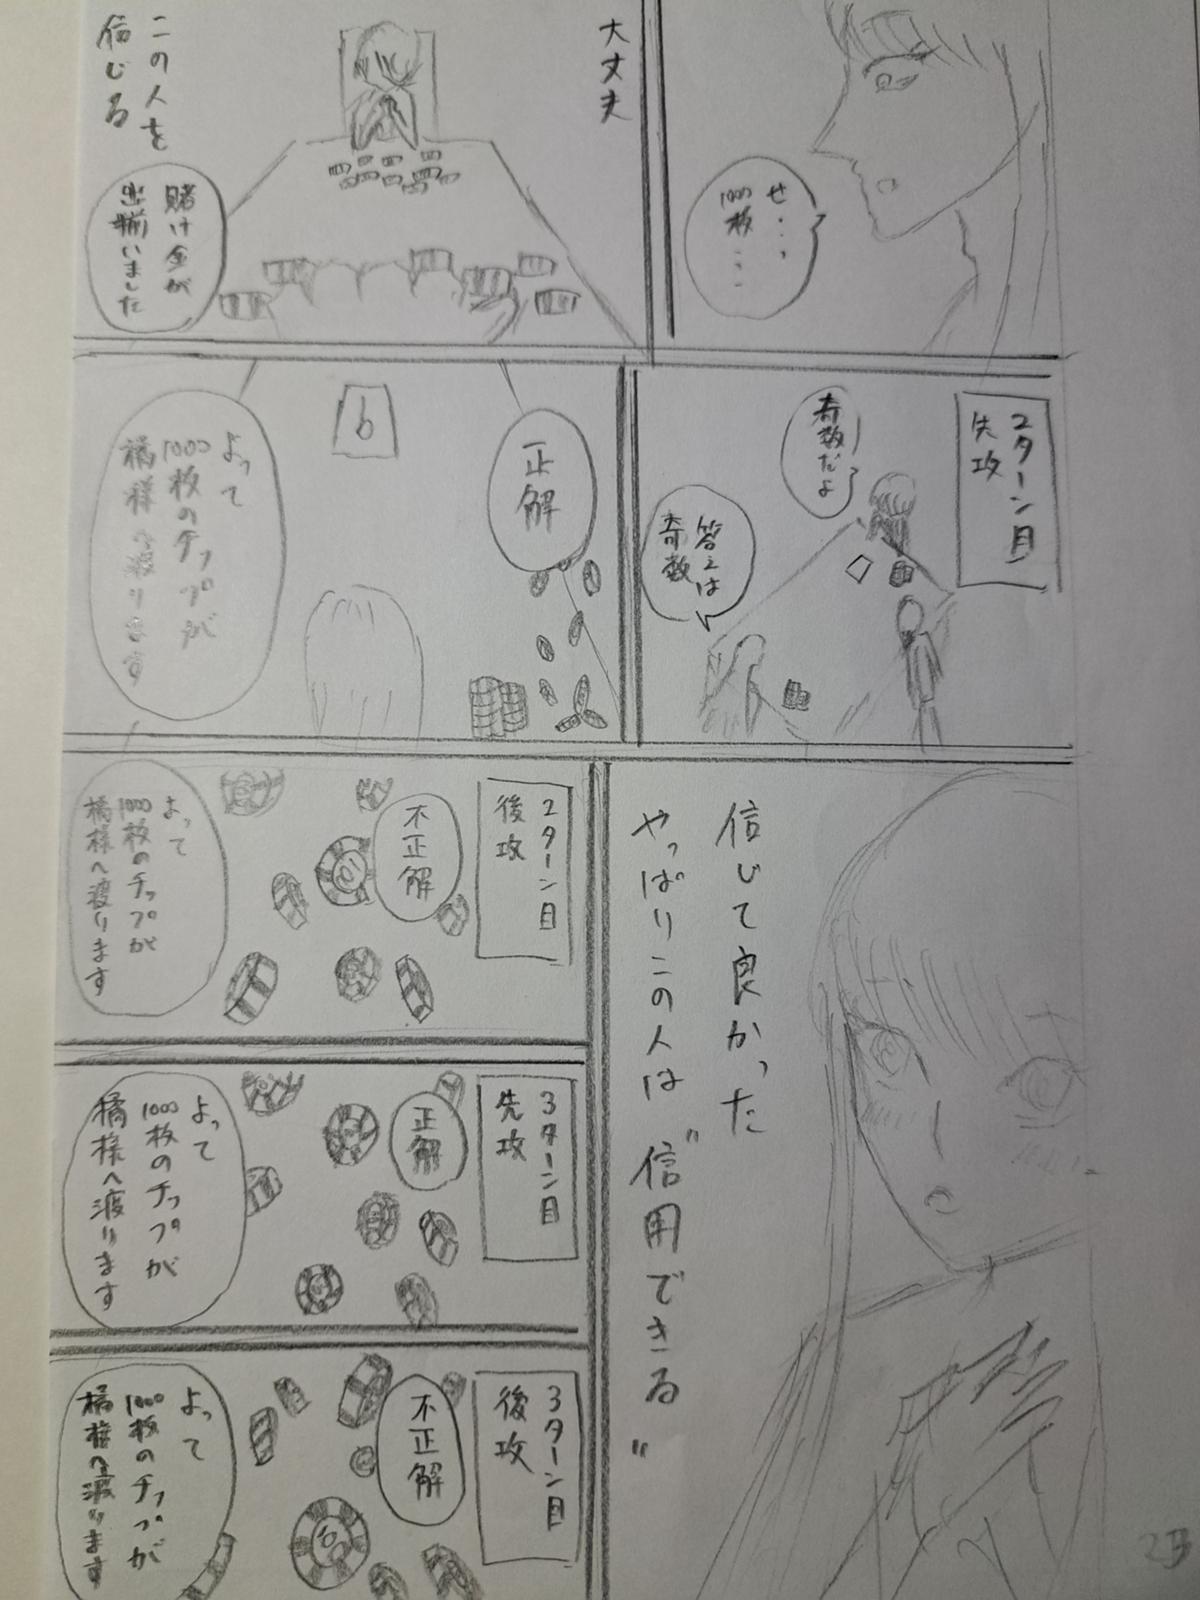 せ...、
1000枚...
大丈夫
この人を
信じる
賭け金が
出揃いました
2ターン目
先攻
奇数だよ
答えは
奇数
正解
6
よって
1000枚のチップが
橘様へ渡ります
信じて良かった
やっぱりこの人は"信用できる"
2ターン目
後攻
不正解
よって
1000枚のチップが
橘様へ渡ります
3ターン目
先攻
正解
よって
1000枚のチップが
橘様へ渡ります
3ターン目
後攻
不正解
よって
1000枚のチップが
橘様へ渡ります